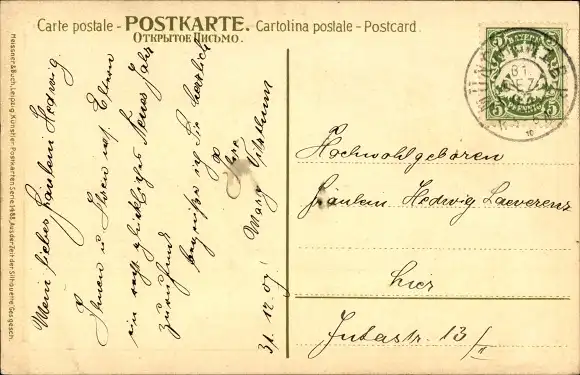 Carte postale - POSTKARTE. - Cartolina postale - Postcard.
ОТКРЫТОЕ ПИСЬМО.
Mein liebes Fräulein Hedwig
Ihnen u Ihren Eltern
ein recht glückliches Neues Jahr
zurufend
Sie herzlich
Ihre
Marg
31. 12. 07.
Meissner & Buch, Leipzig. Künstler-Postkarten Serie 1488, Aus der Zeit der Silhouette. Ges. gesch.
BAYERN
5 5
MÜNCHEN
31 DEZ
Hochwohlgeboren
Fräulein Hedwig Laeverenz
hier
Jutastr. 13/II